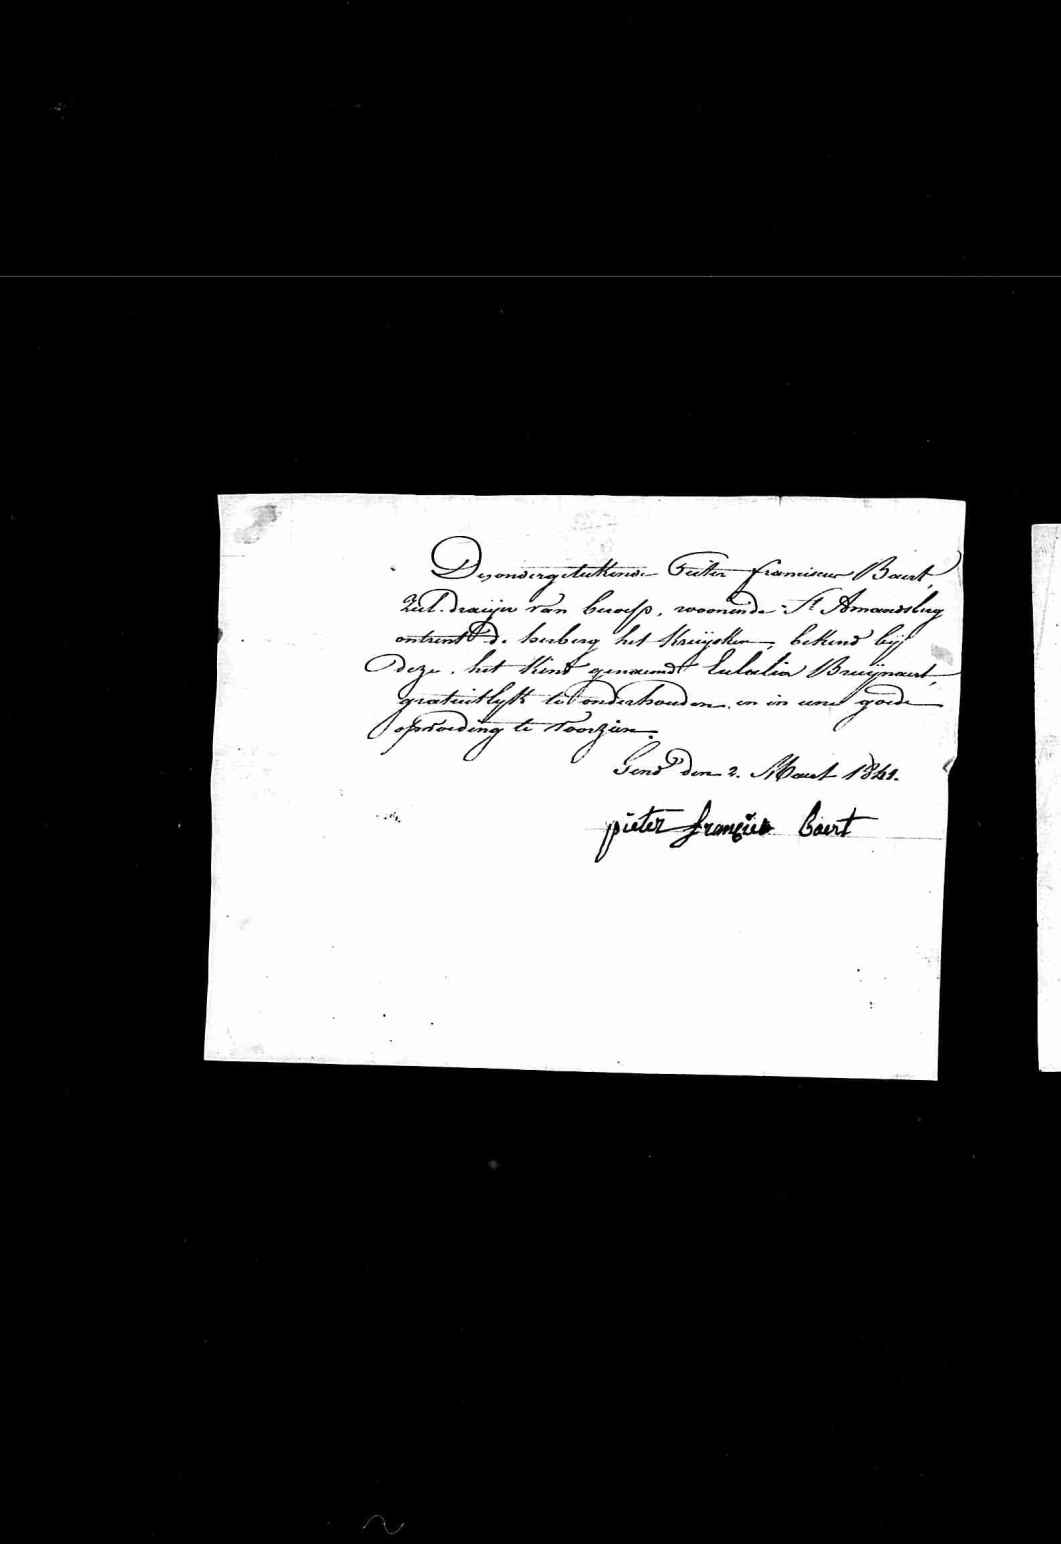 De ondergeteekende Pieter franciscus Baert,
Zeel-draeijer van beroep, woonende St Amandsberg
ontrent de herberg het Kruijsken, bekend bij
deze, het Kind genaemd Eulalia Bruijnaert,
gratuitlyk te onderhouden en in eene goede
opvoeding te voorzien.
Gend den 2. Maert 1841.
pieter françies Baert